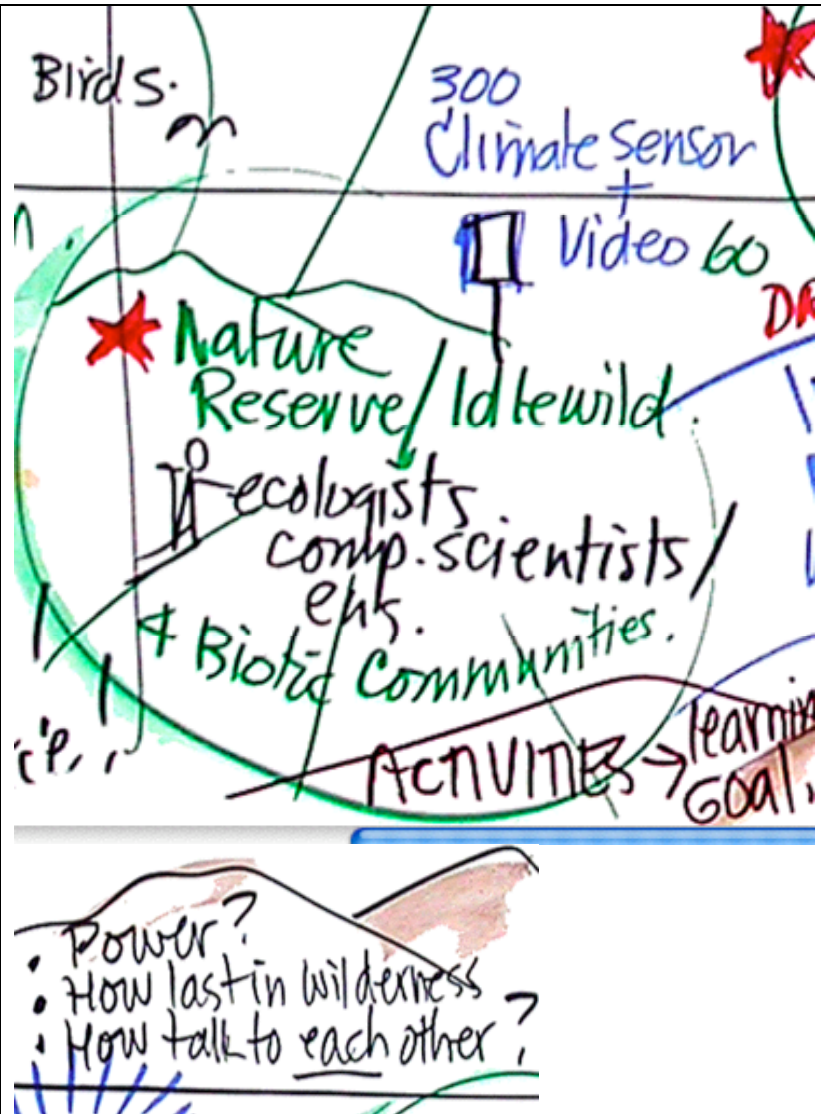 Birds.
300
Climate Sensor
+
Video 60
Nature
Reserve/Idlewild.
ecologists
comp. scientists/
& Biotic Communities.
ACTIVITIES → learnin
GOAL.
• Power?
• How last in wilderness
• How talk to each other?